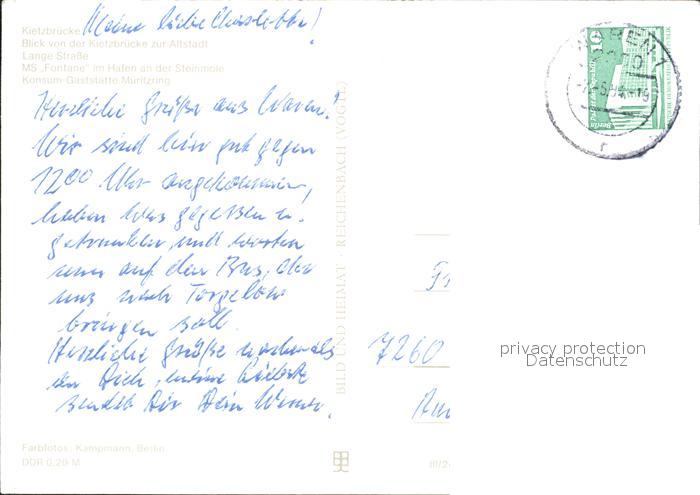 Meine liebe Charlotte!
Kietzbrücke
Blick von der Kietzbrücke zur Altstadt
Lange Straße
MS „Fontane" im Hafen an der Steinmole
Konsum-Gaststätte Müritzring
Herzliche Grüße aus Waren!
Wir sind hier gut gegen
1200 Uhr angekommen,
haben was gegessen u.
getrunken, und warten
nun auf den Bus, der
uns nach Torgelow
bringen soll.
Herzliche Grüße nochmals
an Dich, meine Liebste
sendet Dir Dein Werner.
Farbfotos: Kampmann, Berlin
DDR 0,20 M
BILD UND HEIMAT · REICHENBACH (VOGTL)
III/2
WAREN 1
10
Berlin
7260
privacy protection
Datenschutz